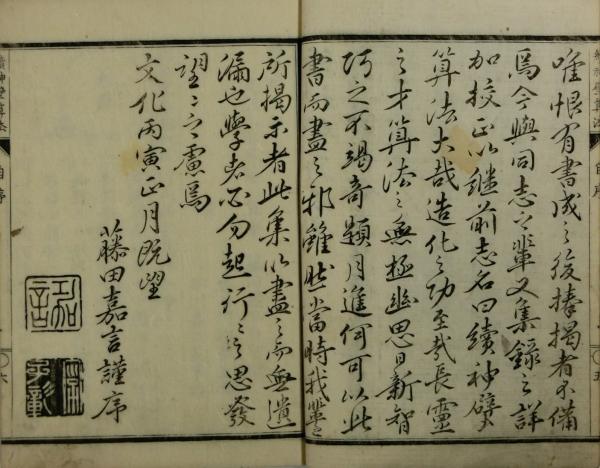 續神壁算法 自序 五
唯恨有書成之後捧揭者不備
焉今與同志之輩又集錄之詳
加挍正以継前志名曰續神壁
算法大哉造化之功至哉長靈
之才算法之無極幽思日新智
巧之不竭奇題月進何可以此
書而盡之邪雖然當時我輩之
所揭示者此集以盡之而無遺
漏也學者必勿起行〻之思發
望〻之慮焉
文化丙寅正月既望
藤田嘉言謹序
嘉言
續神壁算法 自序 六